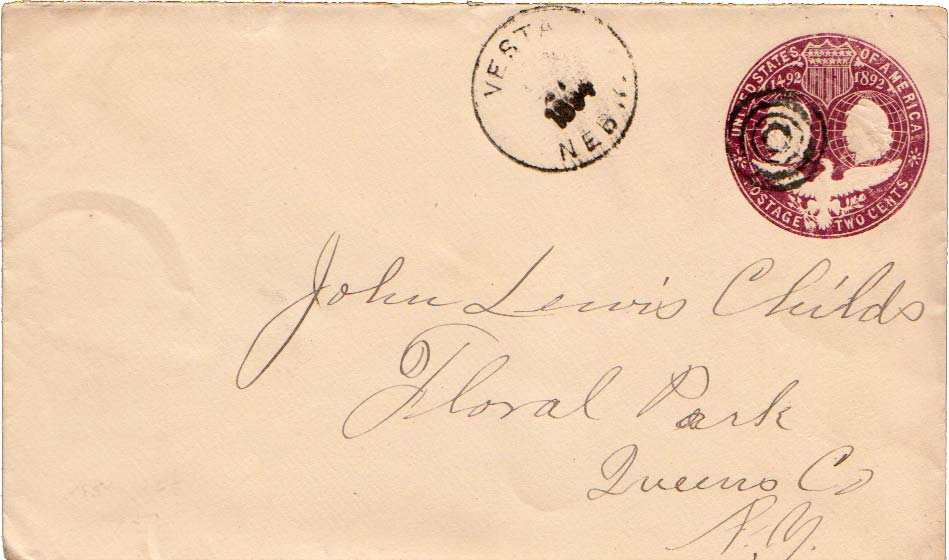 VESTA
NEB.
UNITED STATES OF AMERICA
1492 1892
POSTAGE TWO CENTS
John Lewis Childs
Floral Park
Queens Co
N.Y.